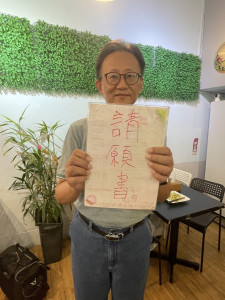 請
願
書